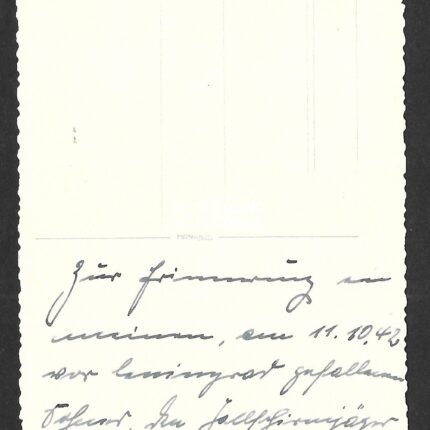 Zur Erinnerung an
meinen, am 11.10.42
vor Leningrad gefallenen
Sohnes, den Fallschirmjäger